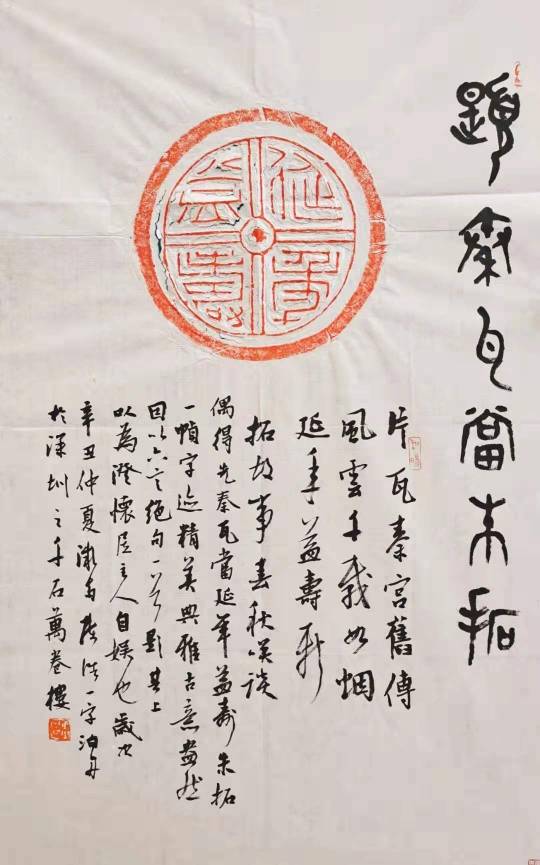 題秦瓦當朱拓
延年益壽
片瓦秦宮舊傳
風雲千載如烟
延年益壽新
拓故事春秋笑談
偶得先秦瓦當延年益壽朱拓
一幀字迹精美典雅古意盎然
因以六言絕句一首題其上
以為澄懷居主人自娛也歲次
辛丑仲夏 一字泊舟
於深圳之千石萬卷樓